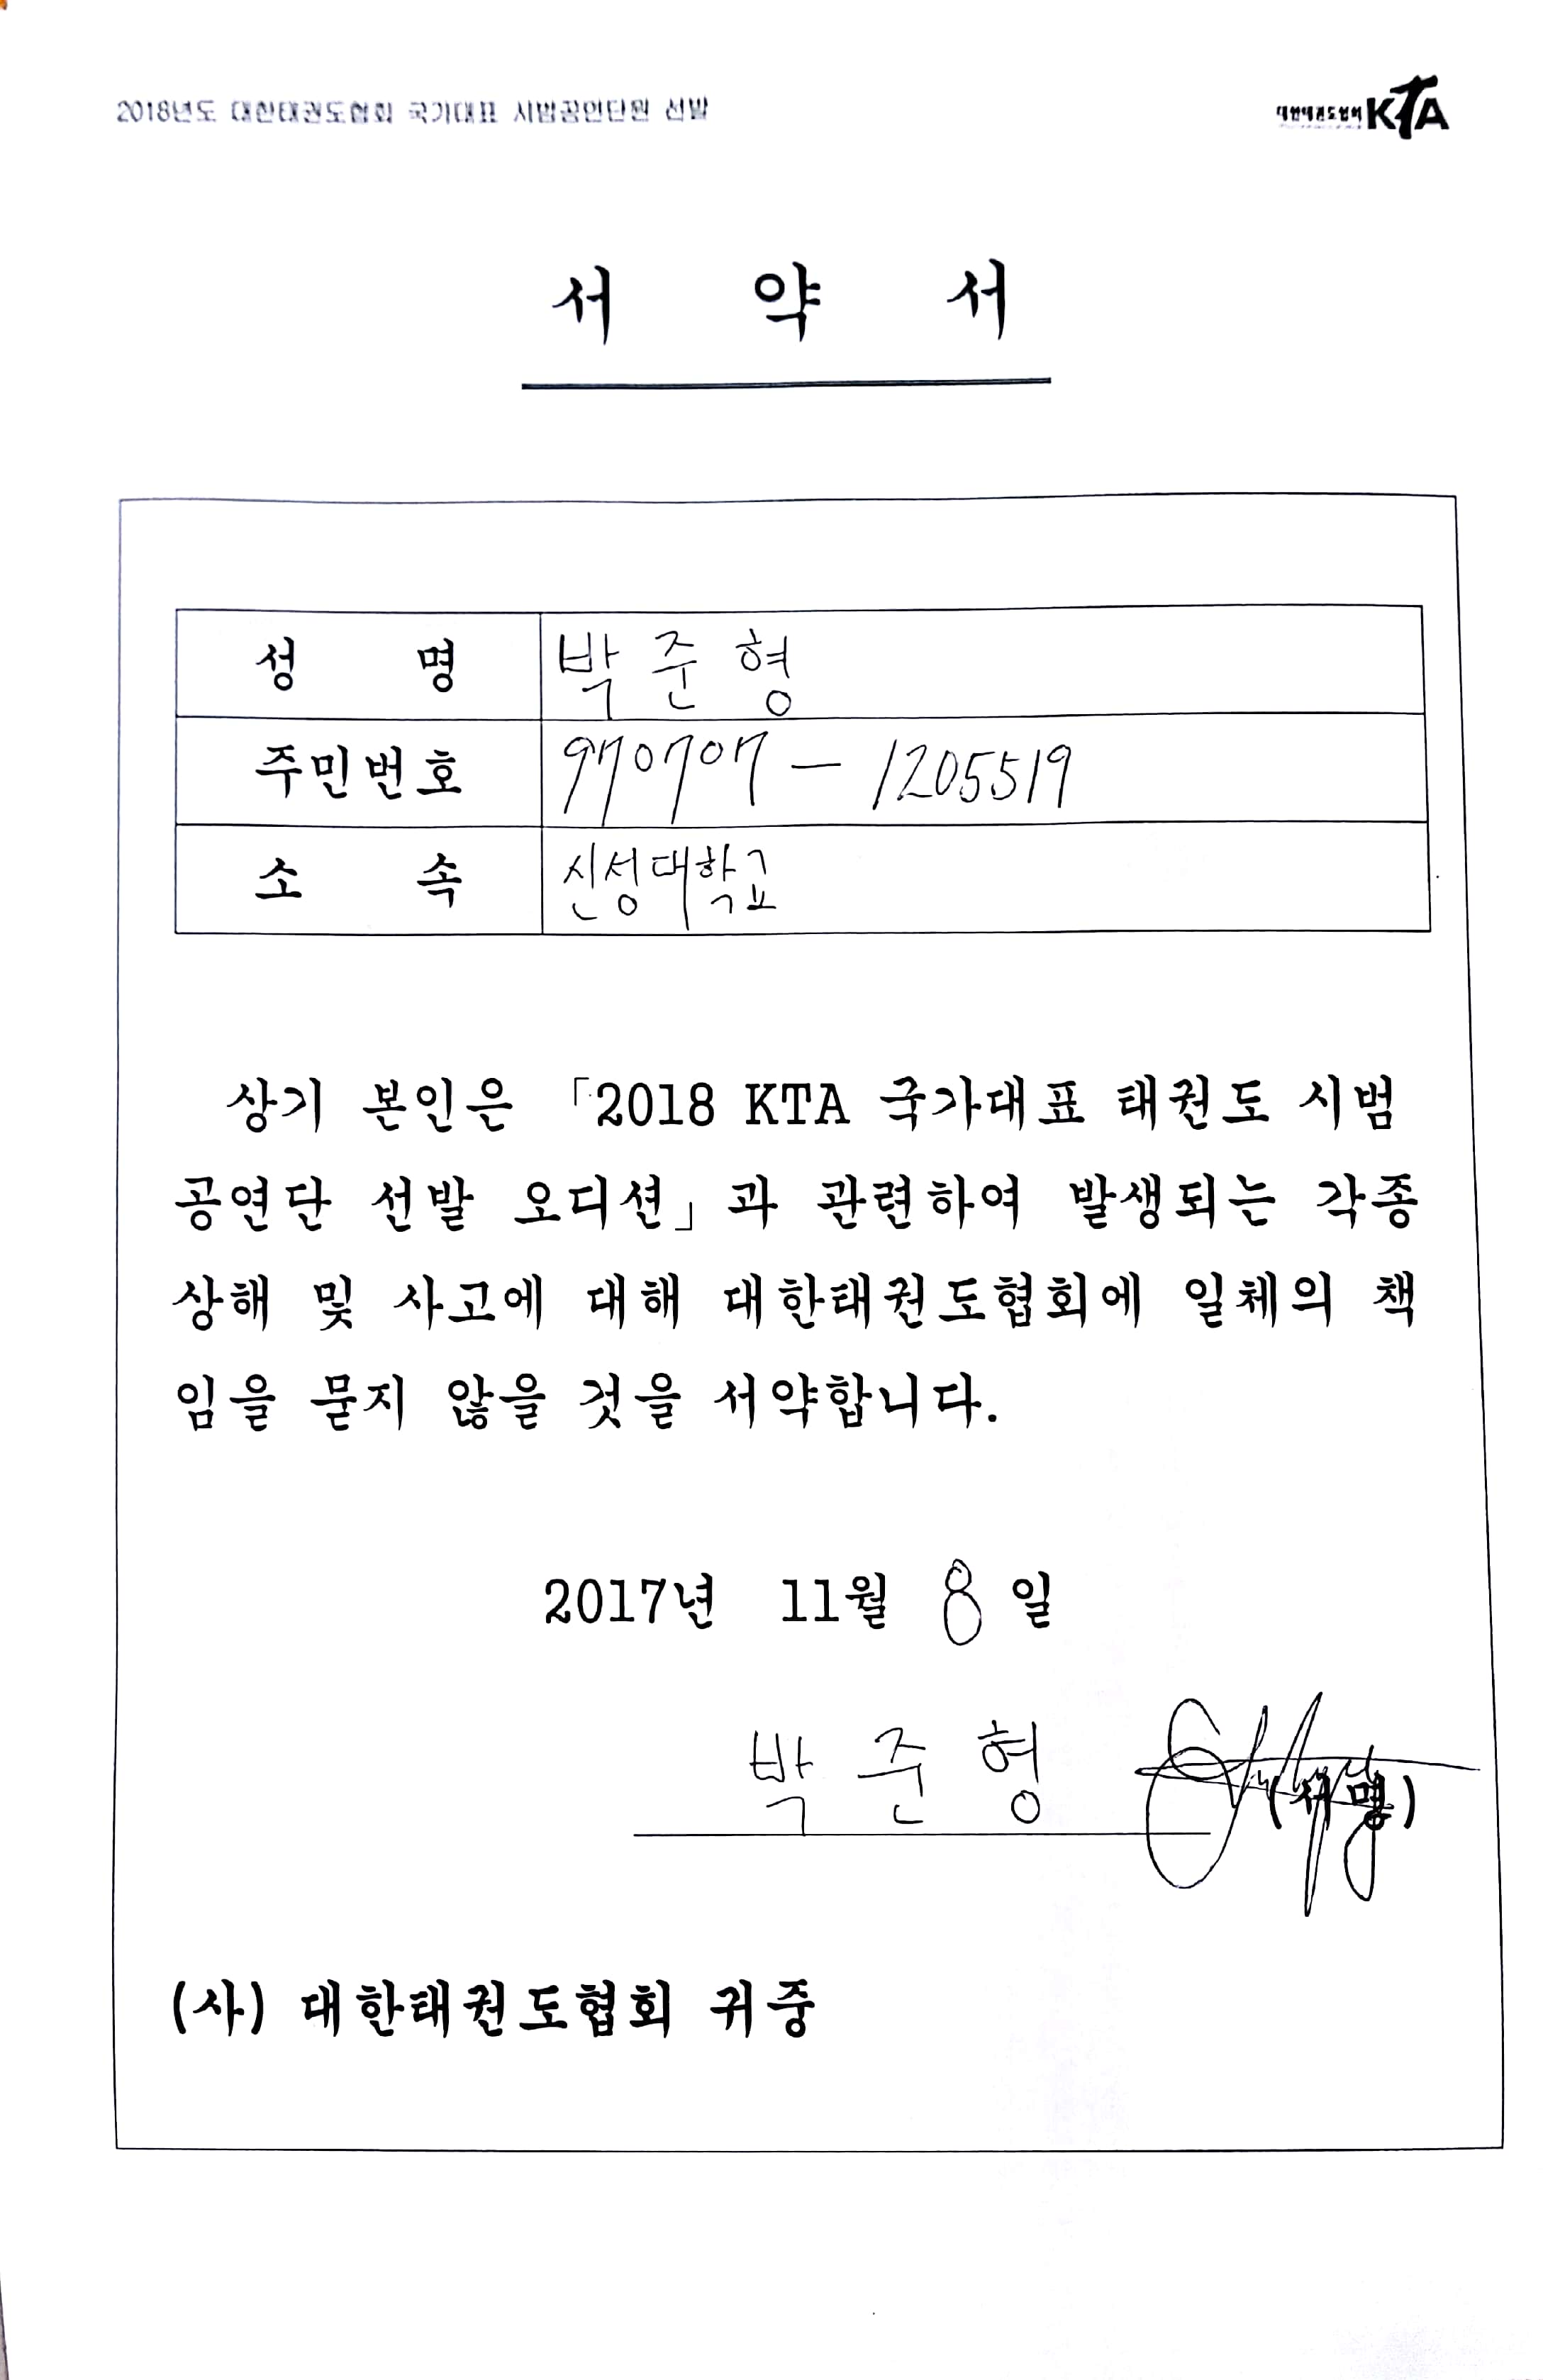 2018년도 대한태권도협회 국가대표 시범공연단원 선발
대한태권도협회 KTA
서 약 서
성 명 박준형
주민번호 970707 - 1205519
소 속 신성대학교
상기 본인은 「2018 KTA 국가대표 태권도 시범
공연단 선발 오디션」과 관련하여 발생되는 각종
상해 및 사고에 대해 대한태권도협회에 일체의 책
임을 묻지 않을 것을 서약합니다.
2017년 11월 8일
박준형 (서명)
(사) 대한태권도협회 귀중